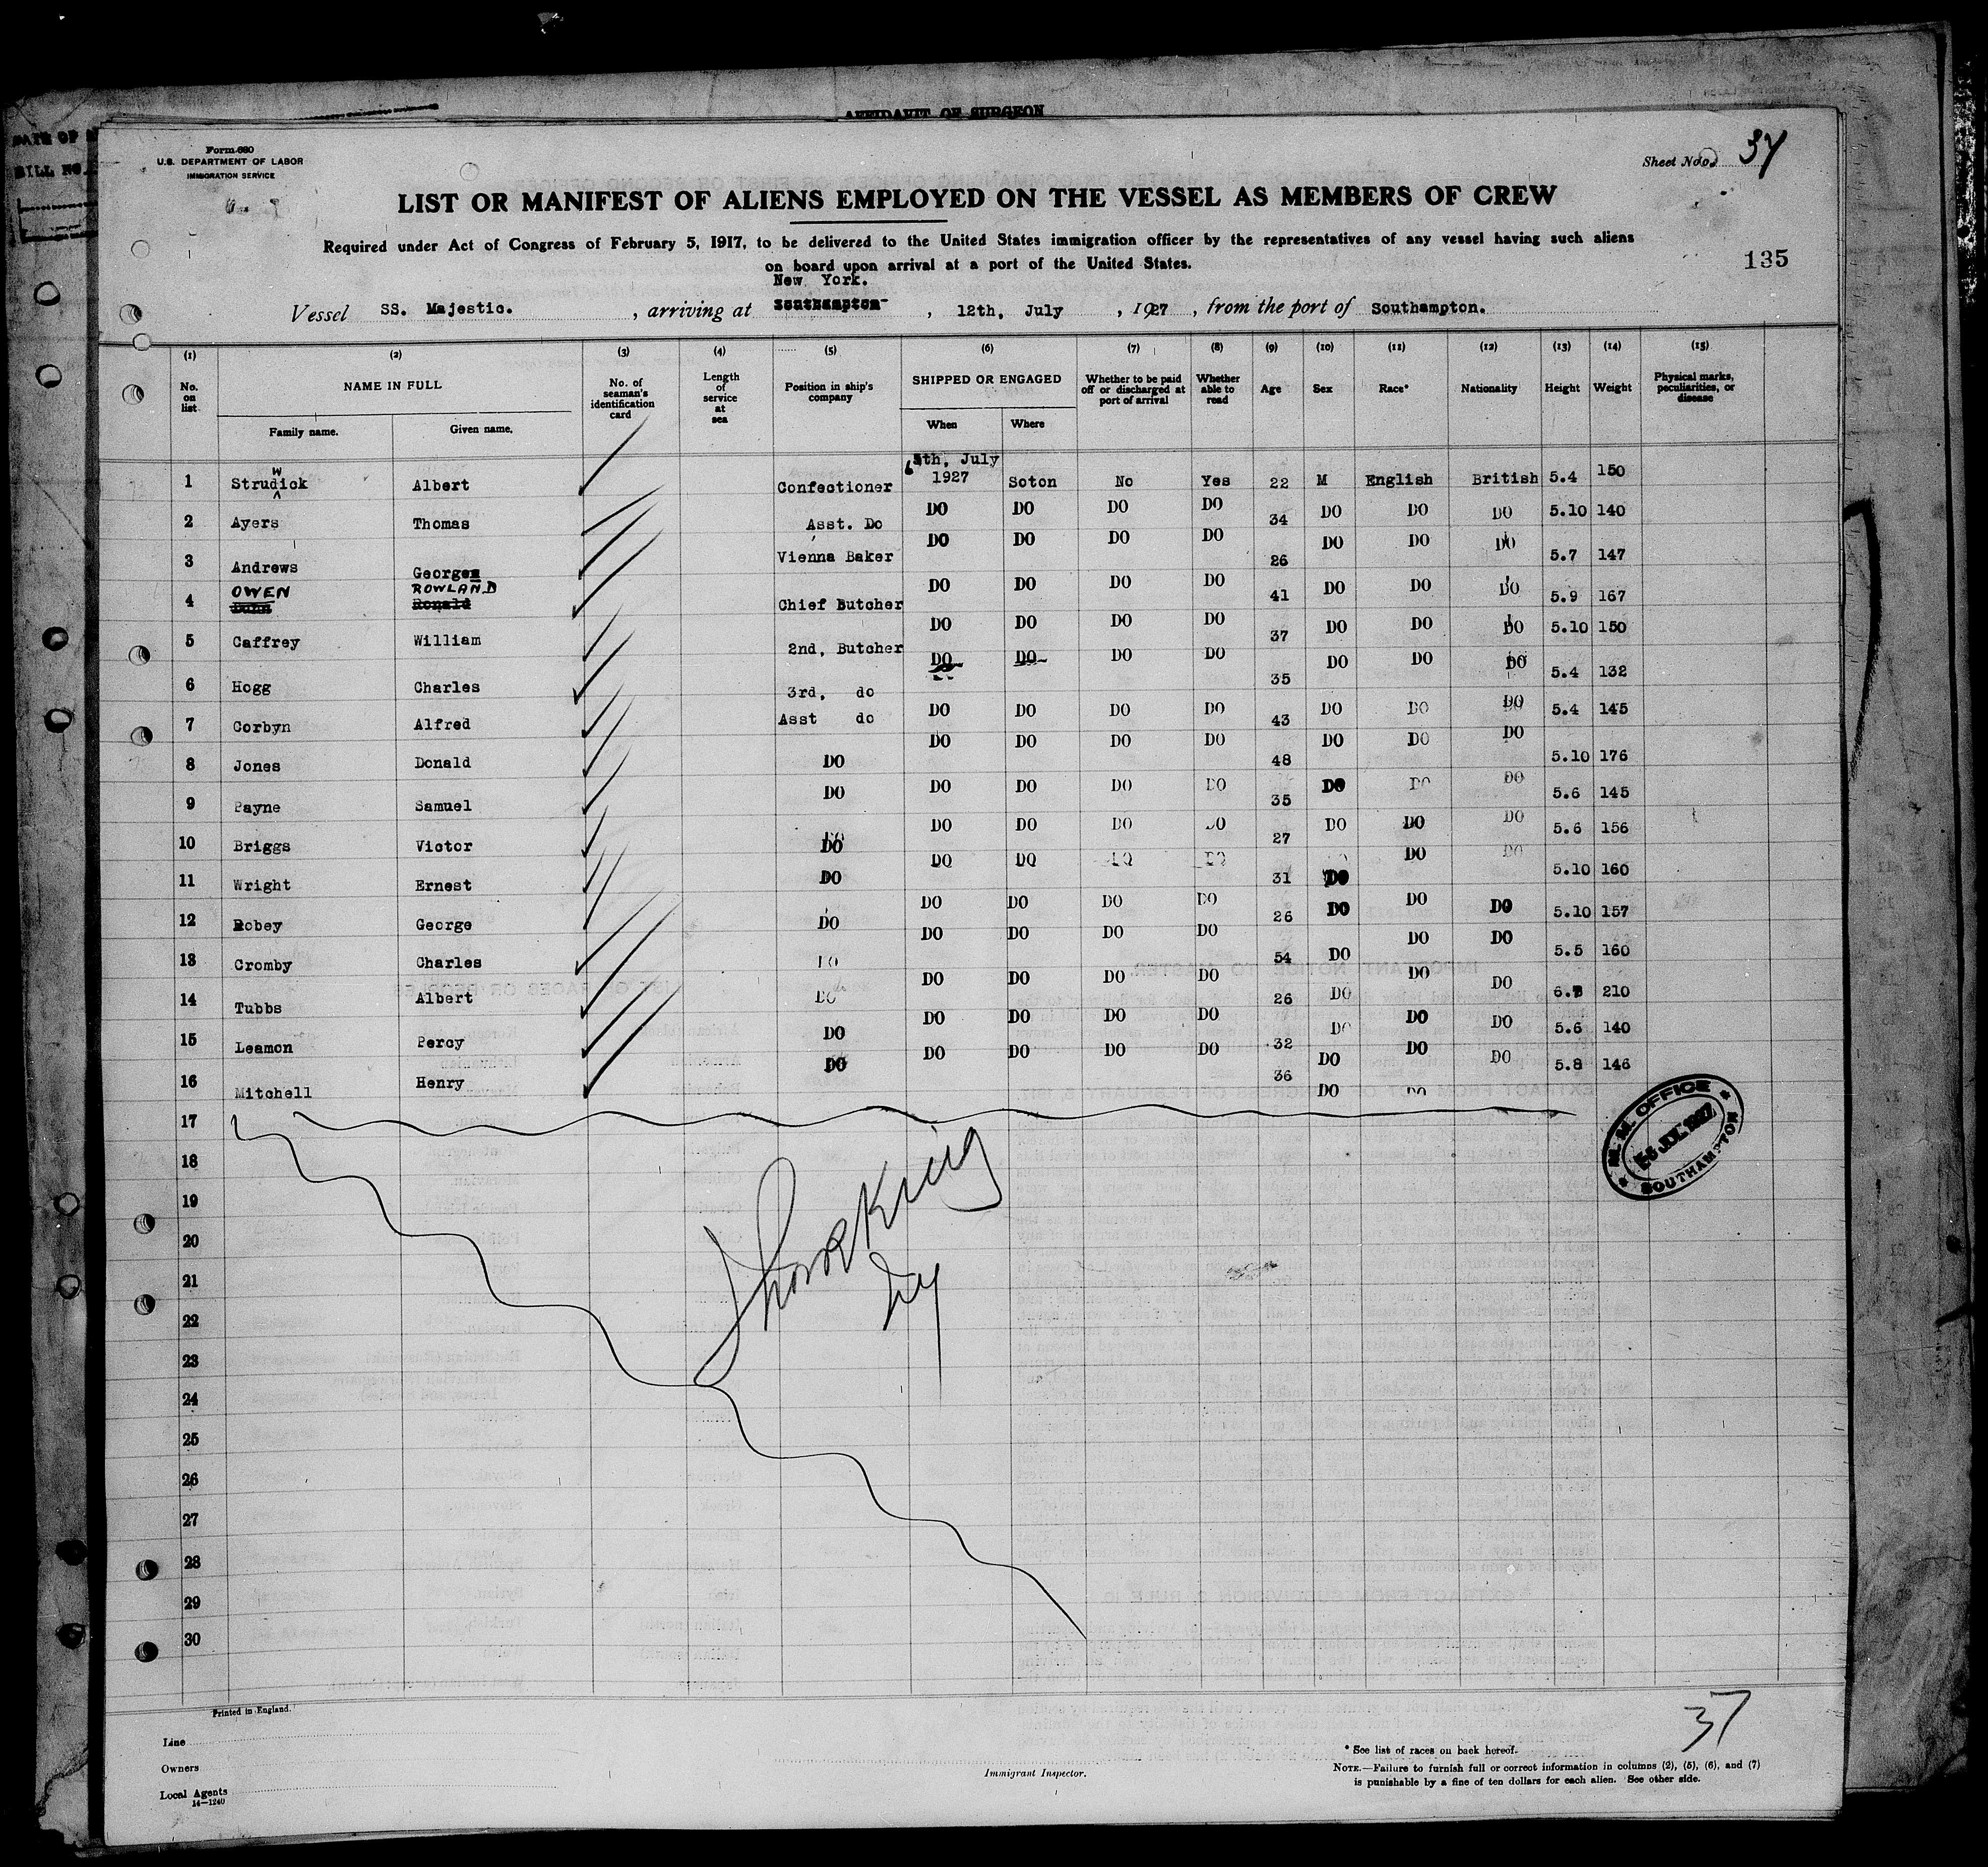 AFFIDAVIT OF SURGEON
Form 680
U.S. DEPARTMENT OF LABOR
IMMIGRATION SERVICE
Sheet No. 34
LIST OR MANIFEST OF ALIENS EMPLOYED ON THE VESSEL AS MEMBERS OF CREW
Required under Act of Congress of February 5, 1917, to be delivered to the United States immigration officer by the representatives of any vessel having such aliens
on board upon arrival at a port of the United States.
135
New York.
Vessel SS. Majestic. , arriving at Southampton , 12th, July , 1927 , from the port of Southampton.
(1) (2) (3) (4) (5) (6) (7) (8) (9) (10) (11) (12) (13) (14) (15)
No. on list. NAME IN FULL Family name. Given name. No. of seaman's identification card Length of service at sea Position in ship's company SHIPPED OR ENGAGED When Where Whether to be paid off or discharged at port of arrival Whether able to read Age Sex Race* Nationality Height Weight Physical marks, peculiarities, or disease
1 Strudwick Albert Confectioner 5th, July 1927 Soton No Yes 22 M English British 5.4 150
2 Ayers Thomas Asst. Do DO DO DO DO 34 DO DO DO 5.10 140
3 Andrews George Vienna Baker DO DO DO DO 26 DO DO DO 5.7 147
4 OWEN ROWLAND Ronald Chief Butcher DO DO DO DO 41 DO DO DO 5.9 167
5 Caffrey William 2nd, Butcher DO DO DO DO 37 DO DO DO 5.10 150
6 Hogg Charles 3rd, do DO DO DO DO 35 DO DO DO 5.4 132
7 Corbyn Alfred Asst do DO DO DO DO 43 DO DO DO 5.4 145
8 Jones Donald DO DO DO DO DO 48 DO DO DO 5.10 176
9 Payne Samuel DO DO DO DO DO 35 DO DO DO 5.6 145
10 Briggs Victor DO DO DO DO DO 27 DO DO DO 5.6 156
11 Wright Ernest DO DO DO DO DO 31 DO DO DO 5.10 160
12 Robey George DO DO DO DO DO 26 DO DO DO 5.10 157
13 Cromby Charles DO DO DO DO DO 54 DO DO DO 5.5 160
14 Tubbs Albert DO DO DO DO DO 26 DO DO DO 210
15 Leamon Percy DO DO DO DO DO 32 DO DO DO 5.6 140
16 Mitchell Henry DO DO DO DO DO 36 DO DO DO 5.8 146
17
18
19
20
21
22
23
24
25
26
27
28
29
30
M. M. OFFICE
5 JUL 1927
SOUTHAMPTON
37
Printed in England.
Line
Owners
Local Agents
14—1240
Immigrant Inspector.
* See list of races on back hereof.
NOTE.—Failure to furnish full or correct information in columns (2), (5), (6), and (7)
is punishable by a fine of ten dollars for each alien. See other side.